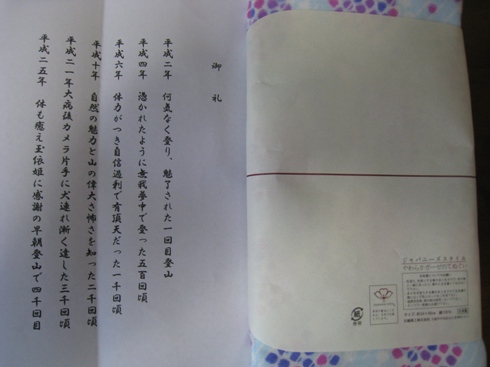 御礼
平成二年　何気なく登り、魅了された一回目登山
平成四年　憑かれたように無我夢中で登った五百回頃
平成六年　体力がつき自信過剰で有頂天だった一千回頃
平成十年　自然の魅力と山の偉大さ怖さを知った二千回頃
平成二一年大病後カメラ片手に犬連れ漸く達した三千回頃
平成二五年　体も癒え玉依姫に感謝の早朝登山で四千回目
ジャパニーズスタイル
やわらかガーゼのてぬぐい
紙